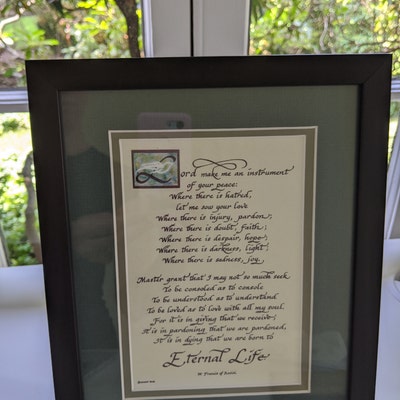 Lord make me an instrument
of your peace:
Where there is hatred,
let me sow your love
Where there is injury, pardon;
Where there is doubt, faith;
Where there is despair, hope;
Where there is darkness, light;
Where there is sadness, joy.
Master grant that I may not so much seek
To be consoled as to console
To be understood as to understand
To be loved as to love with all my soul.
For it is in giving that we receive;
It is in pardoning that we are pardoned,
It is in dying that we are born to
Eternal Life
St Francis of Assisi